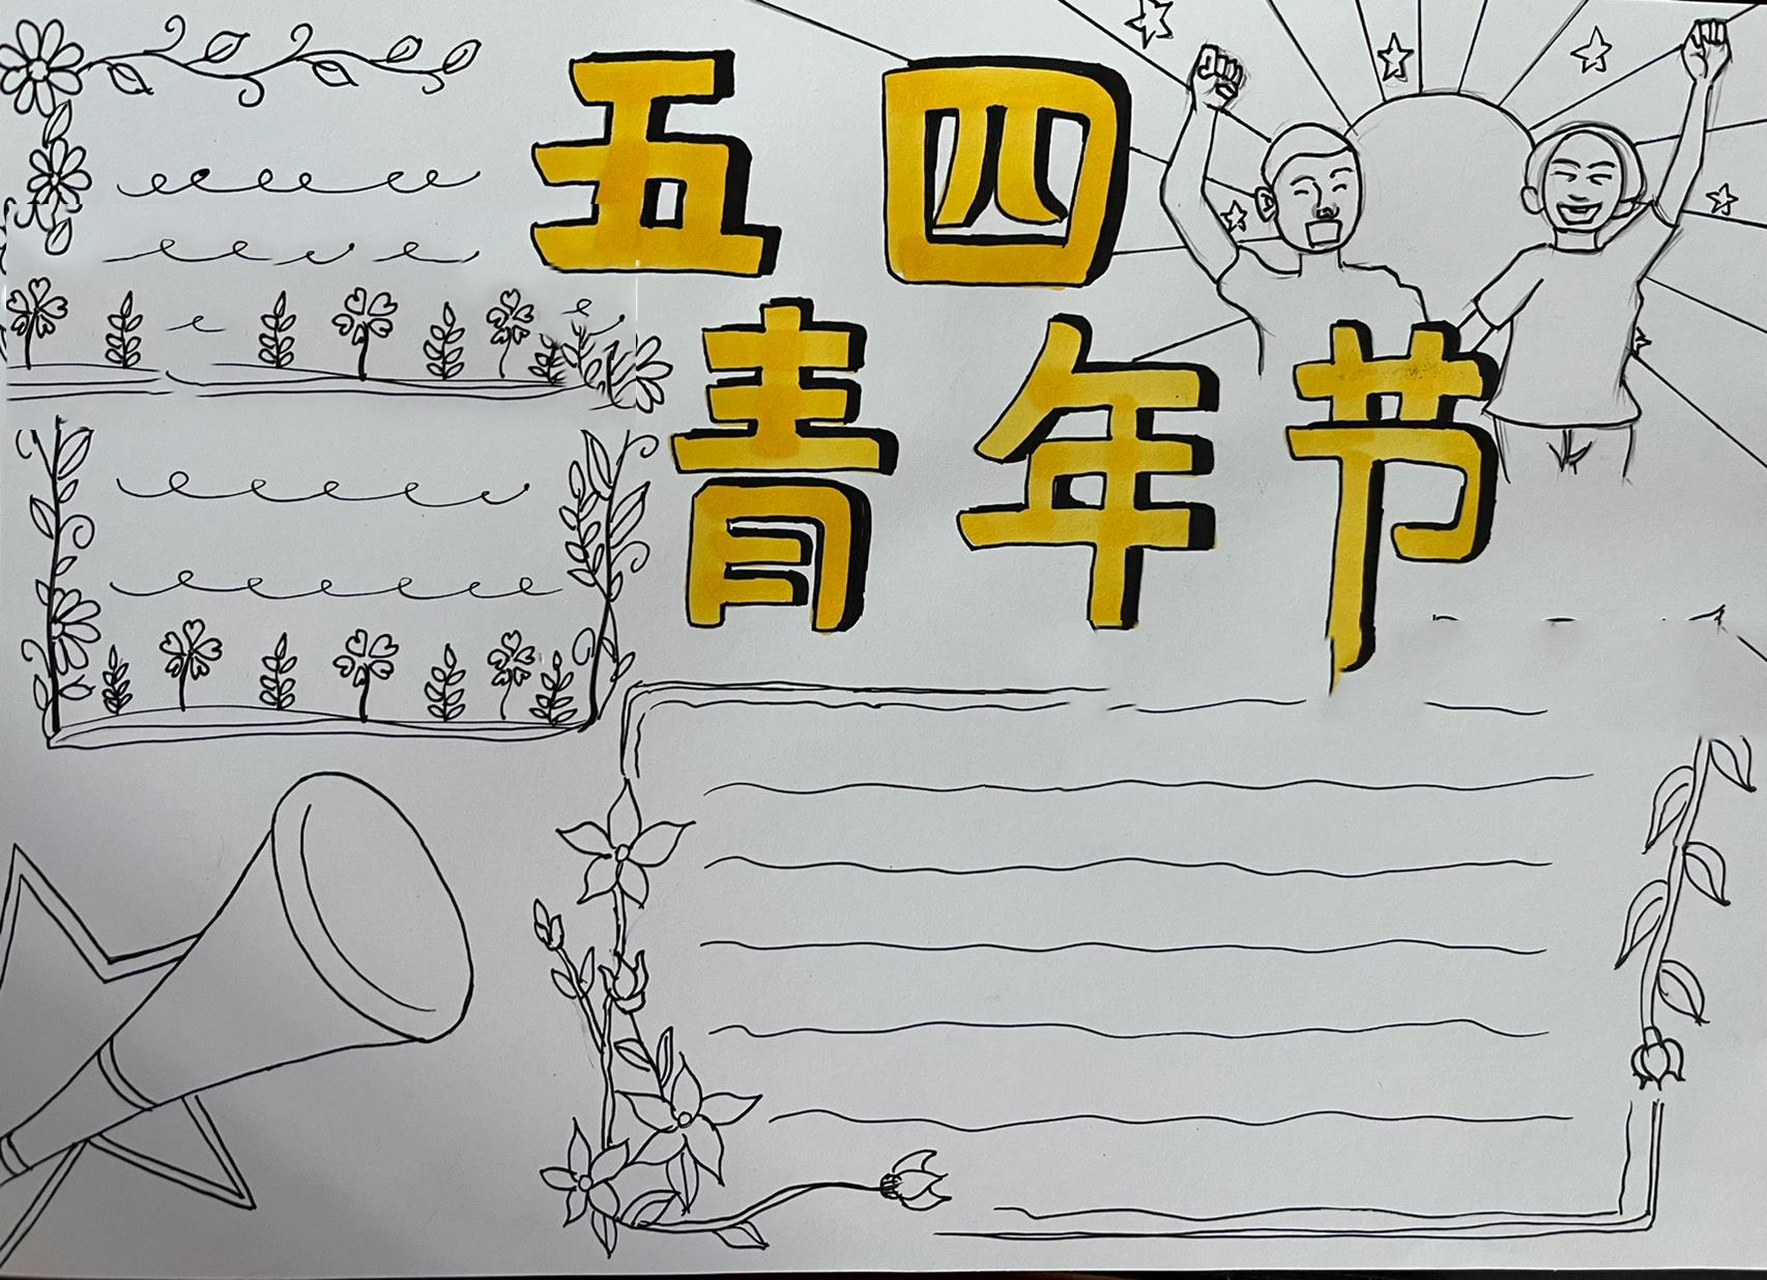 五四
青年节